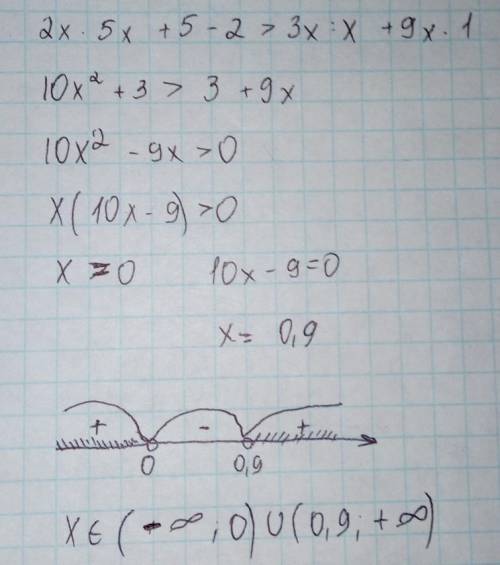 2x · 5x + 5 - 2 > 3x : x + 9x · 1
10x² + 3 > 3 + 9x
10x² - 9x > 0
x(10x - 9) > 0
x = 0 10x - 9 = 0
x = 0,9
+ - +
0 0,9
x ∈ (-∞; 0) ∪ (0,9; +∞)